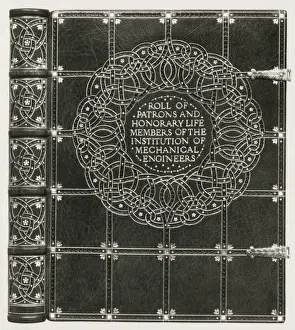 ROLL OF
PATRONS AND
HONORARY LIFE
MEMBERS OF THE
INSTITUTION OF
MECHANICAL
ENGINEERS